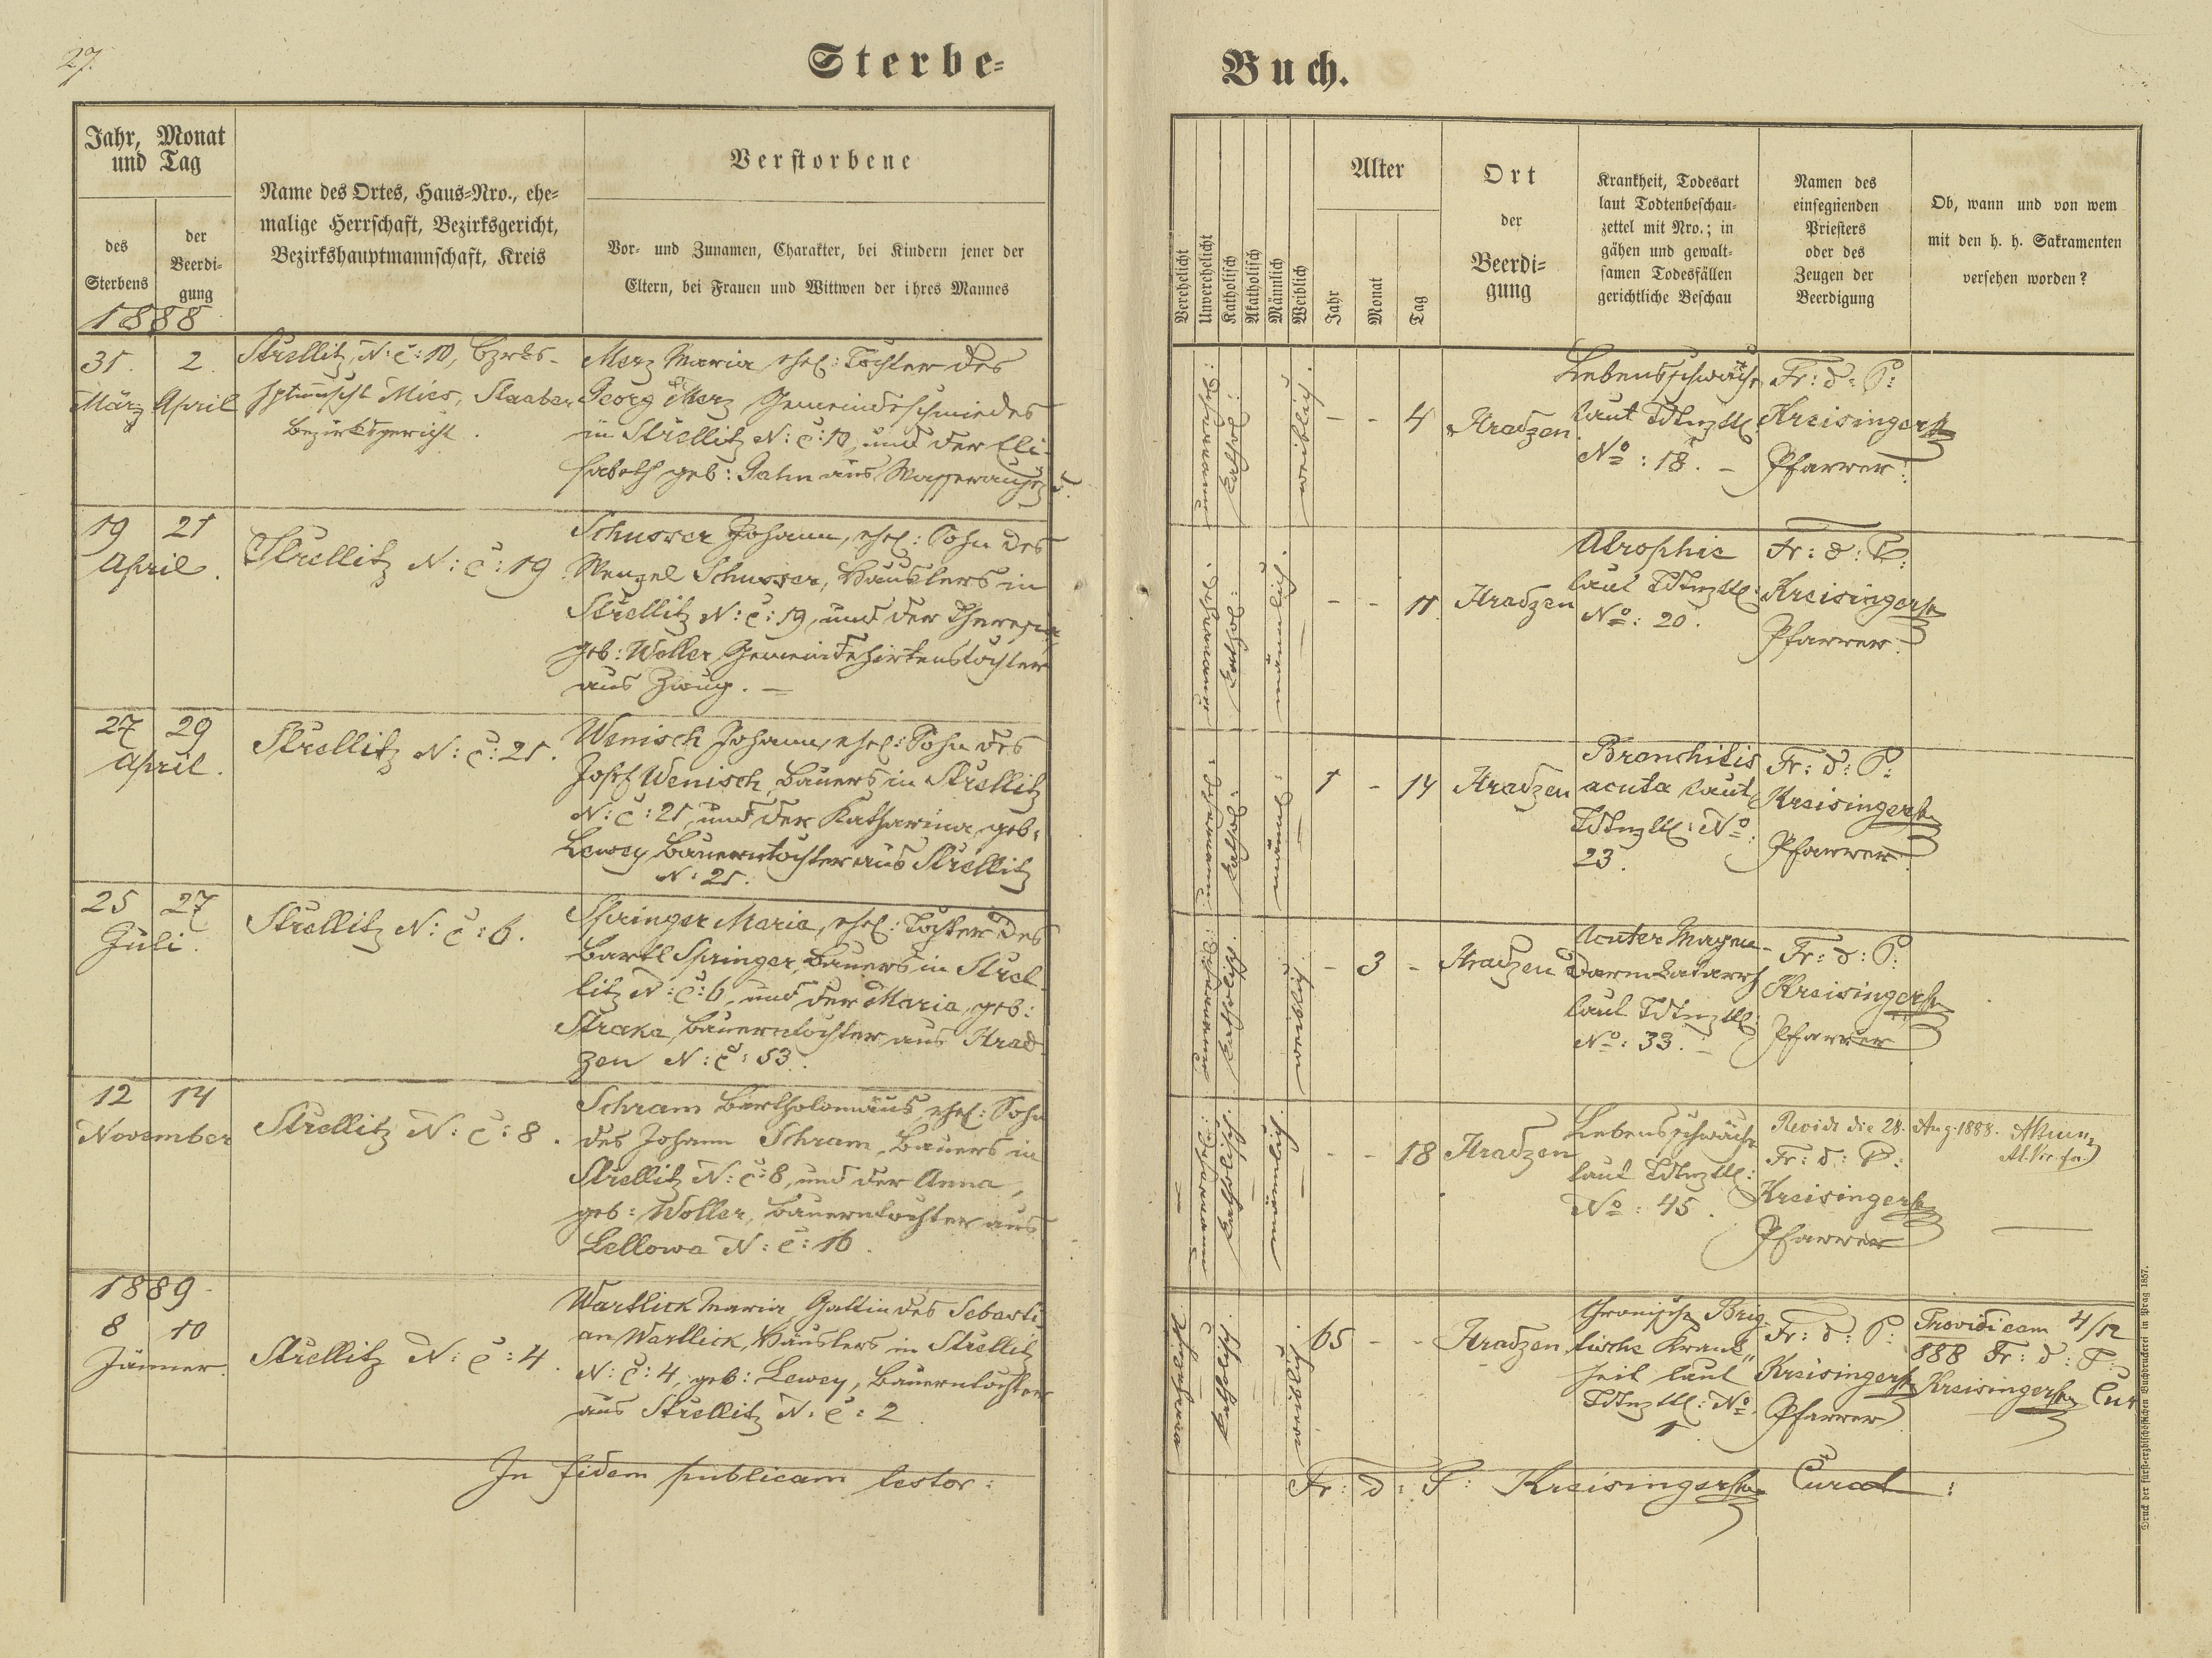 27.
Sterbe-
Buch.
Jahr, Monat
und Tag
des
Sterbens
der
Beerdi-
gung
Name des Ortes, Haus-Nro., ehe-
malige Herrschaft, Bezirksgericht,
Bezirkshauptmannschaft, Kreis
Verstorbene
Vor- und Zunamen, Charakter, bei Kindern jener der
Eltern, bei Frauen und Wittwen der ihres Mannes
Verehelicht
Unverehelicht
Katholisch
Akatholisch
Männlich
Weiblich
Alter
Jahr
Monat
Tag
Ort
der
Beerdi-
gung
Krankheit, Todesart
laut Todtenbeschau-
zettel mit Nro.; in
gähen und gewalt-
samen Todesfällen
gerichtliche Beschau
Namen des
einsegnenden
Priesters
oder des
Zeugen der
Beerdigung
Ob, wann und von wem
mit den h. h. Sakramenten
versehen worden?
1888
31. 2.
März April
Strellitz, N: c: 10, Bzrks-
hptmscht Mies, Staaber
Bezirksgericht.
Merz Maria, ehel: Tochter des
Georg Merz Gemeindeschmiedes
in Strellitz N: c: 10, und der Eli-
sabeth geb: Gahn aus
unverehel:
kathol:
weiblich.
- - 4
Hradzen
Lebensschwäche
laut Tdtnzttl.
No: 18. -
Fr: d: P:
Kreisinger
Pfarrer:
19 21
April.
Strellitz N: c: 19
Schusser Johann, ehel: Sohn des
Wenzel Schusser, Häuslers in
Strellitz N: c: 19, und der Theresia
geb: Woller, Gemeindehirtenstochter
aus Zwug. -
unverehel.
kathol:
männlich.
- - 11
Hradzen
Atrophie
laut Tdtnzttl:
No: 20.
Fr: d: P:
Kreisinger
Pfarrer.
27 29
April.
Strellitz N: c: 21.
Wenisch Johann, ehel: Sohn des
Josef Wenisch, Bauers in Strellitz
N: c: 21, und der Katharina, geb:
Lewey Bauerntochter aus Strellitz
N: 21.
unverehel:
kathol:
männl:
1 - 14
Hradzen
Bronchitis
acuta laut
Tdtnzttl: No:
23.
Fr: d: P:
Kreisinger
Pfarrer.
25 27
Juli.
Strellitz N: c: 6.
Springer Maria, ehel: Tochter des
Bartl Springer, Bauers in Strel-
litz N: c: 6, und der Maria, geb:
Straka, Bauerntochter aus Hrad-
zen N: c: 53.
unverehel:
katholisch.
weiblich.
- 3 -
Hradzen
Acuter Magen-
Darmkatarrh
laut Tdtnzttl:
No: 33. -
Fr: d: P:
Kreisinger
Pfarrer
12 14
November
Strellitz N: c: 8.
Schram Bartholomäus, ehel: Sohn
des Johann Schram, Bauers in
Strellitz N: c: 8, und der Anna,
geb: Woller, Bauerntochter aus
Lellowa N: c: 16.
unverehel:
katholisch.
männlich.
- - 18
Hradzen
Lebensschwäche
laut Tdtnzttl:
No: 45.
Revid die 28. Aug. 1888.
Fr: d: P:
Kreisinger
Pfarrer
1889
8 10
Jänner.
Strellitz N: c: 4.
Wartlick Maria, Gattin des Sebasti-
an Wartlick, Häuslers in Strellitz
N: c: 4, geb: Lewey, Bauerntochter
aus Strellitz N: c: 2.
katholisch.
weiblich.
65 - -
Hradzen
Chronische Brig-
tische Krank-
heit laut
Tdtnzttl: No:
1
Fr: d: P:
Kreisinger
Pfarrer
Providi eam 4/12
888 Fr: d: P:
Kreisinger Cur
In fidem publicam testor:
Fr: d: P: Kreisinger Curat:
Druck der fürsterzbischöflichen Buchdruckerei in Prag 1857.